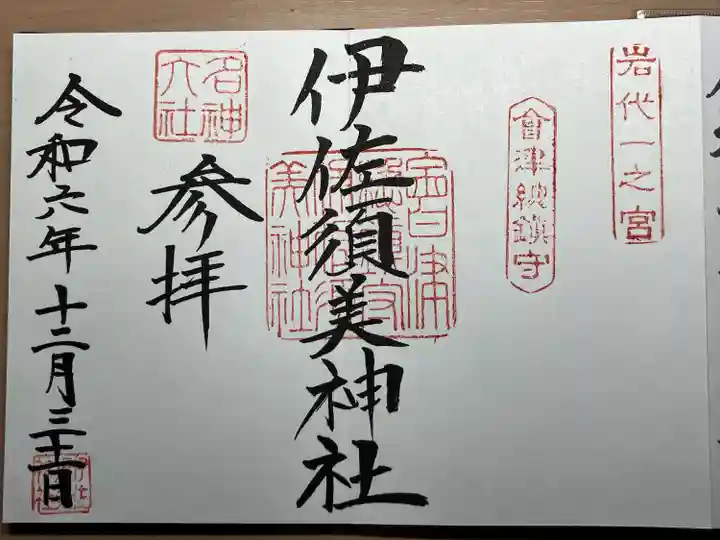 岩代一之宮
會津総鎮守
伊佐須美神社
名神大社
参拝
令和六年十二月三十一日